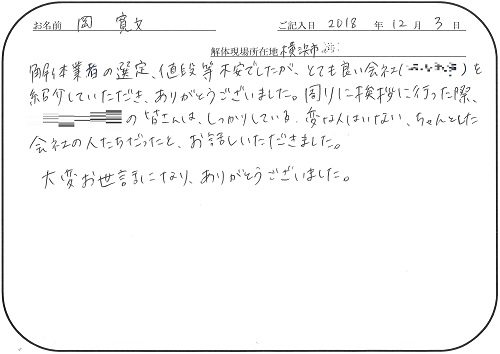 お名前 岡 寛 ご記入日 2018 年 12 月 3 日
解体現場所在地 横浜市
解体業者の選定、値段等不安でしたが、とても良い会社( )を
紹介していただき、ありがとうございました。周りに挨拶に行った際、
の皆さんは、しっかりしている、変な人はいない、ちゃんとした
会社の人たちだったと、お話しいただきました。
大変お世話になり、ありがとうございました。